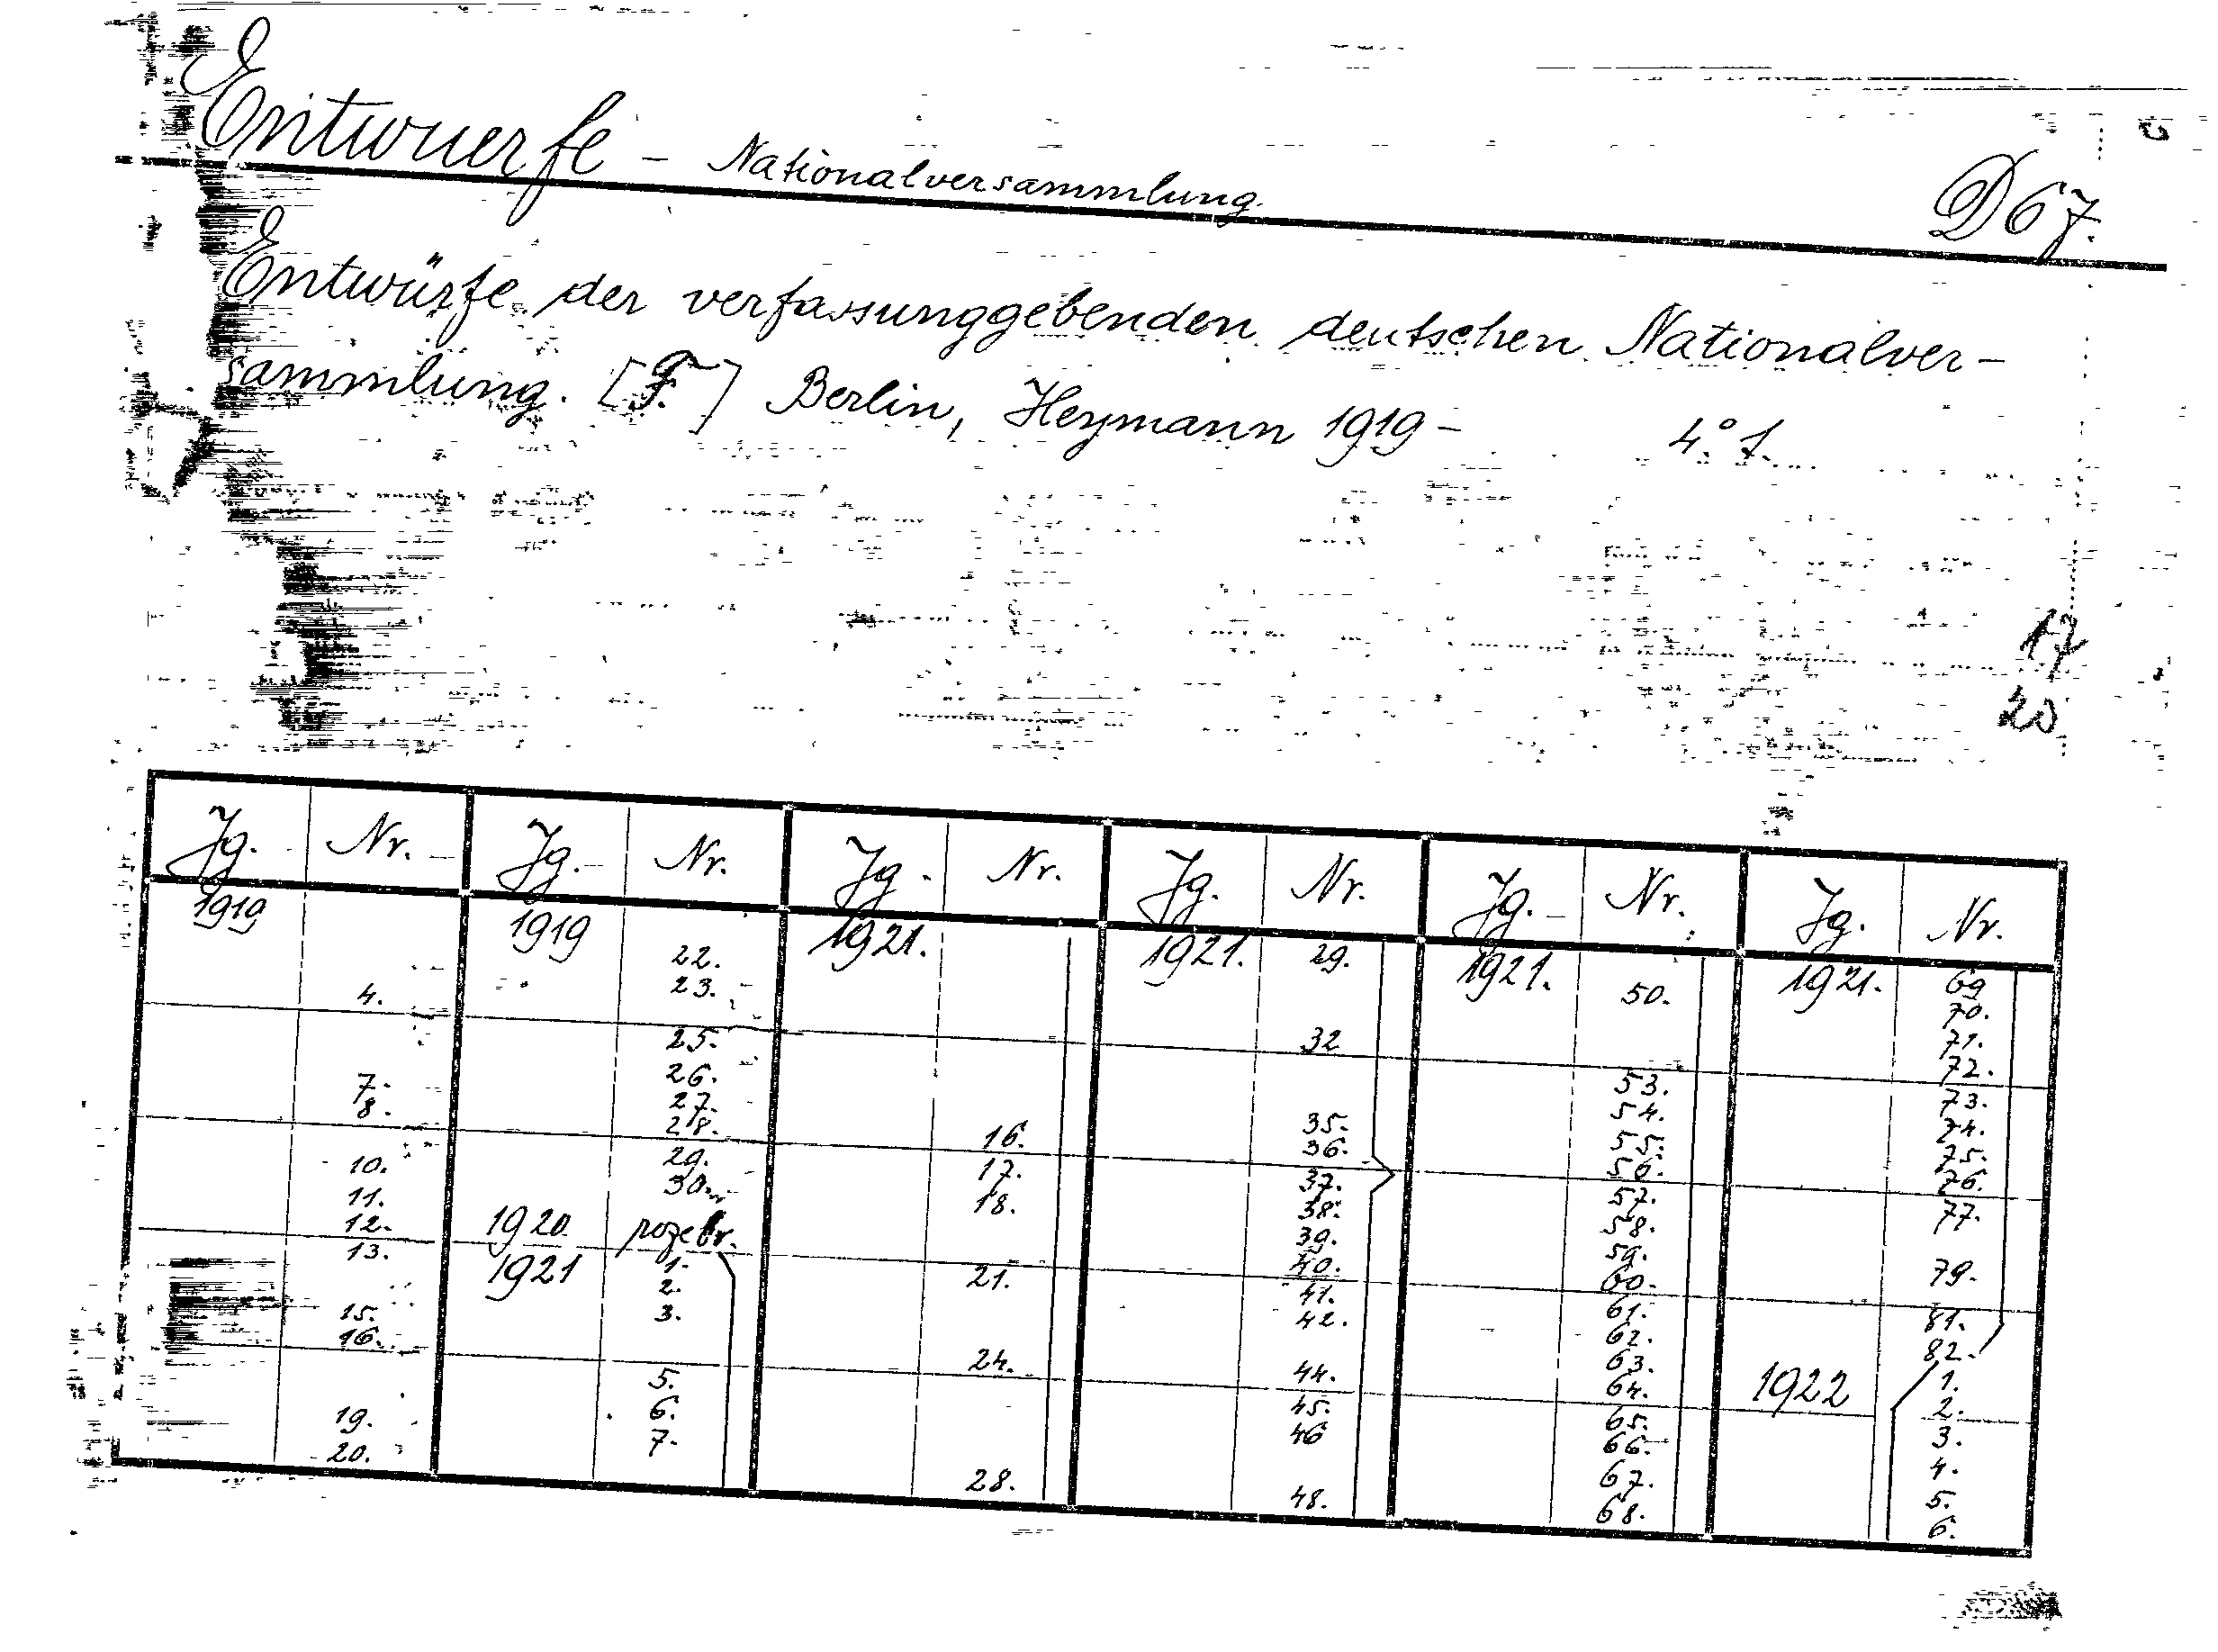 Entwuerfe - Nationalversammlung.
D 67.
Entwürfe der verfassunggebenden deutschen Nationalver-
sammlung. [F.] Berlin, Heymann 1919 - 4.° f.
17
20
Jg. Nr. Jg. Nr. Jg. Nr. Jg. Nr. Jg. Nr. Jg. Nr.
1919
4.
7.
8.
10.
11.
12.
13.
15.
16.
19.
20.
1919
22.
23.
25.
26.
27.
28.
29.
30.
1920.
1921 1.
2.
3.
5.
6.
7.
1921.
16.
17.
18.
21.
24.
28.
1921. 29.
32
35.
36.
37.
38.
39.
40.
41.
42.
44.
45.
46
48.
1921. 50.
53.
54.
55.
56.
57.
58.
59.
60.
61.
62.
63.
64.
65.
66.
67.
68.
1921. 69
70.
71.
72.
73.
74.
75.
76.
77.
79.
81.
82.
1922 1.
2.
3.
4.
5.
6.